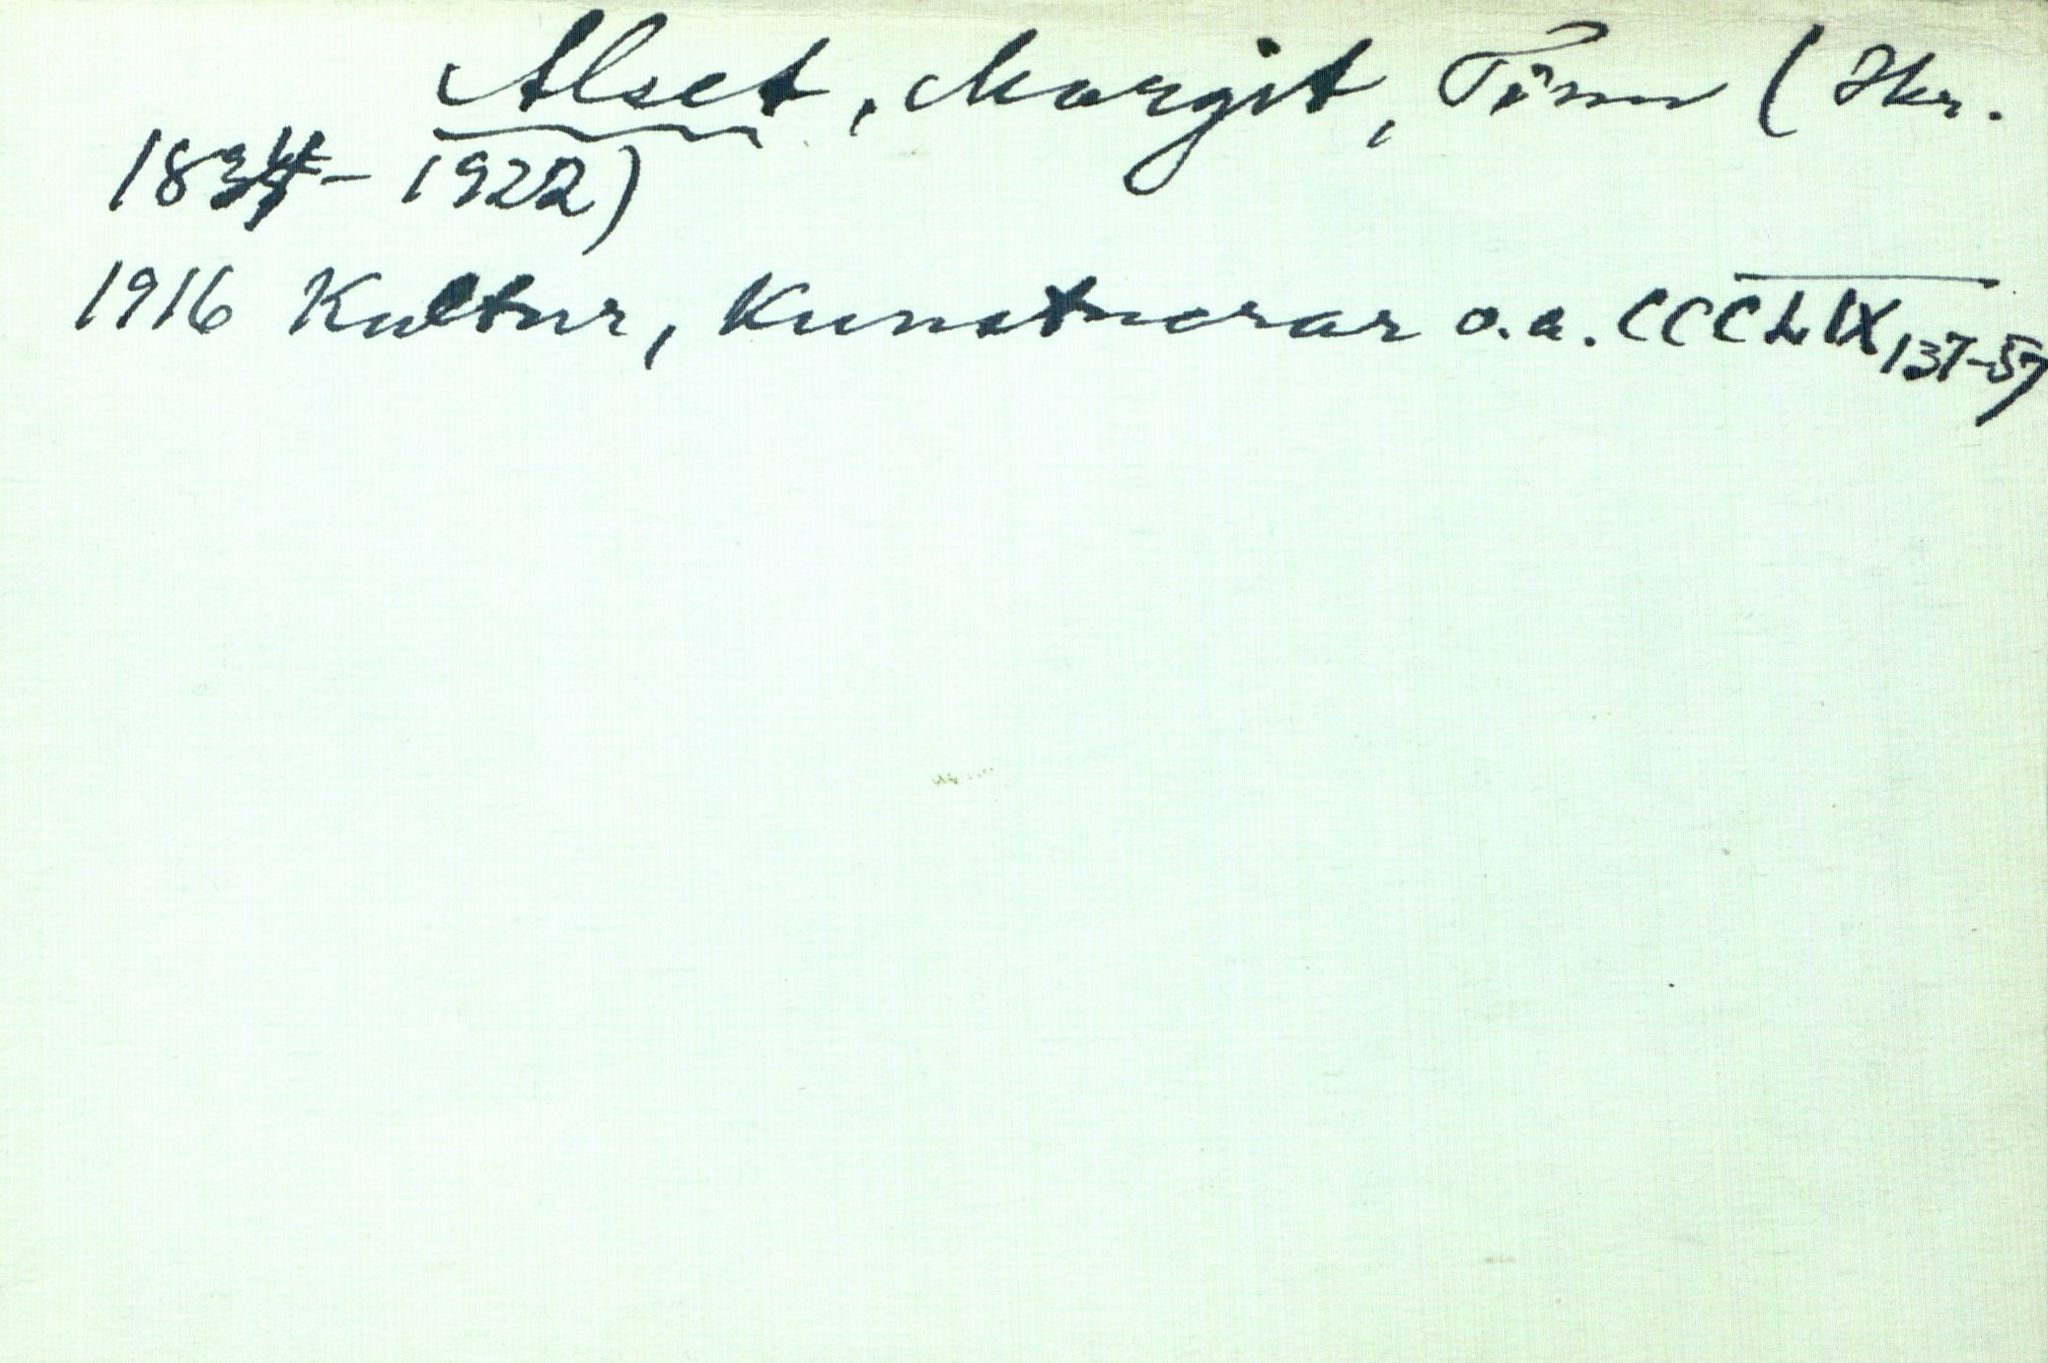 Alset, Margit, Tinn (Hkr.
1834 - 1922)
1916 Kultur, Kunstnarar o.a. CCCLIX 137-57